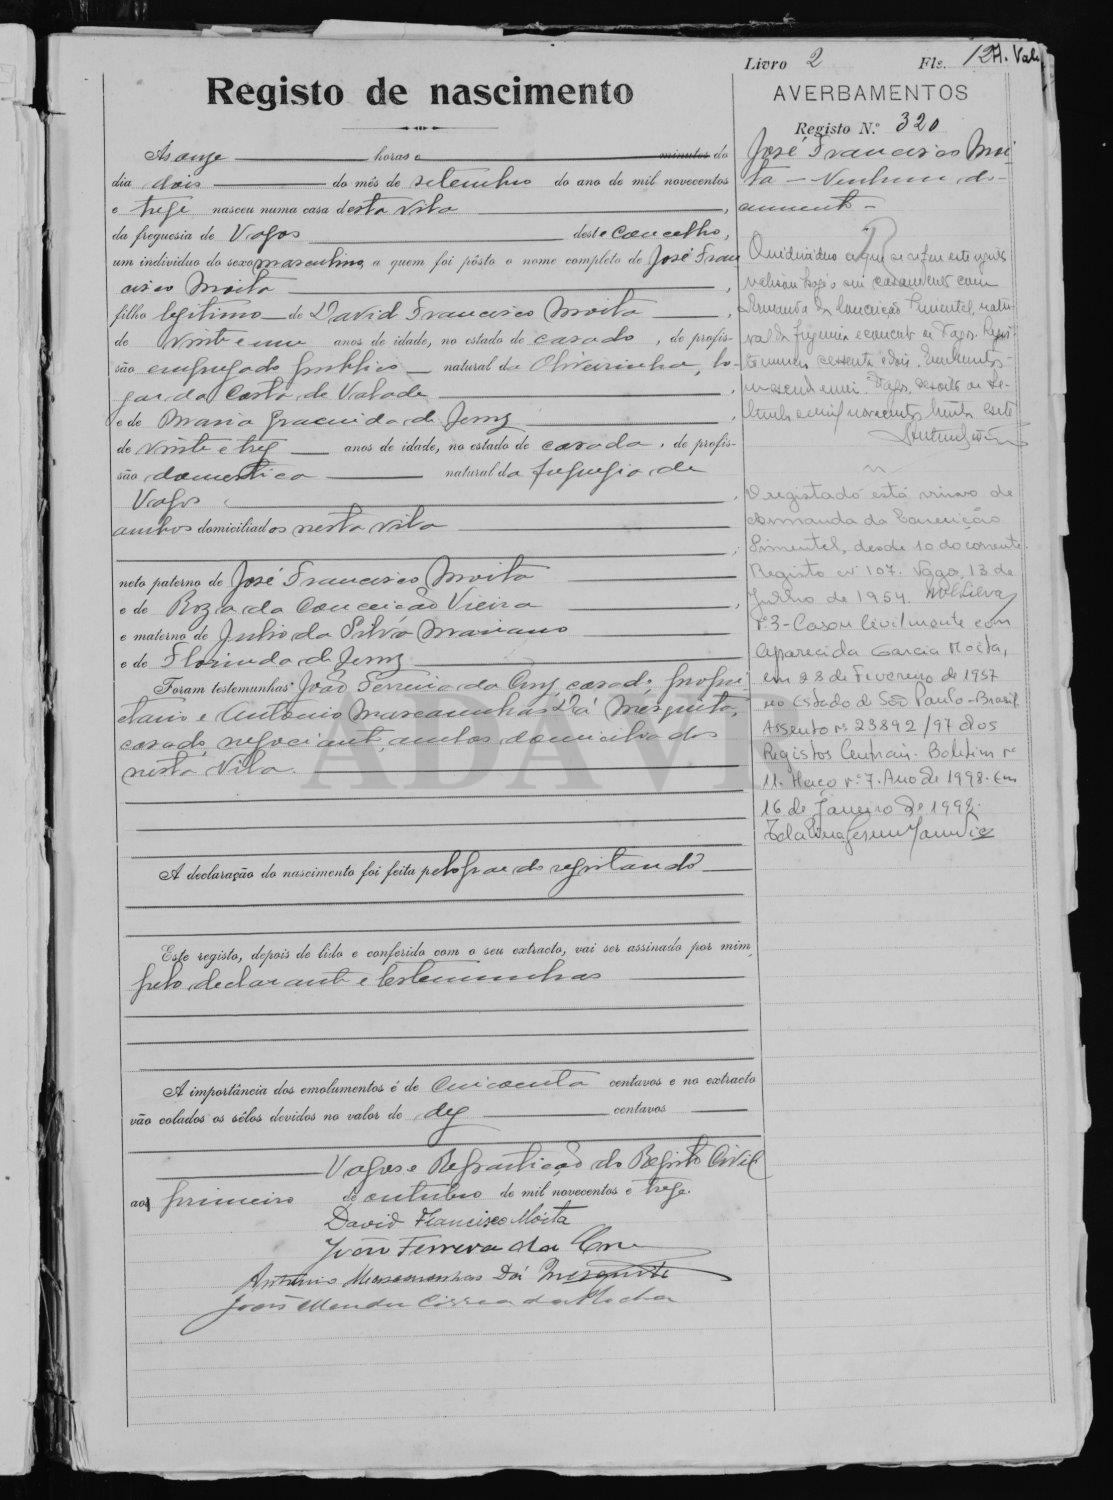 Livro 2 Fls. 127. Vale
Registo de nascimento
AVERBAMENTOS
Registo N.º 320
José Francisco Moi-
ta — Nenhum do-
cumento —
Ás onze horas e minutos do
dia dois do mês de setembro do ano de mil novecentos
e treze nasceu numa casa desta vila ,
da freguesia de Vagos deste concelho,
um individuo do sexo masculino, a quem foi pôsto o nome completo de José Fran
cisco Moita ,
filho legitimo de David Francisco Moita ,
de vinte e um anos de idade, no estado de casado , de profis-
são empregado publico natural da Oliveirinha, lo-
gar da Costa de Valade ,
e de Maria Gracinda de Jesus ,
de vinte e tres anos de idade, no estado de casada , de profis-
são domestica natural da freguesia de
Vagos ,
ambos domiciliados nesta vila
;
neto paterno de José Francisco Moita
e de Roza da Conceição Vieira ,
e materno de Julio da Silva Mariano
e de Florinda de Jesus
Foram testemunhas João Ferreira da Cruz, casado, propri-
etario e Antonio Mascarenhas Dá Mesquita,
casado, negociante, ambos domiciliados
nesta Vila.
A declaração do nascimento foi feita pelo pae do registando
Este registo, depois de lido e conferido com o seu extracto, vai ser assinado por mim,
pelo declarante e testemunhas
A importância dos emolumentos é de cincoenta centavos e no extracto
vão colados os sêlos devidos no valor de dez centavos
Vagos e Repartição do Registo Civil
aos primeiro de outubro de mil novecentos e treze.
David Francisco Moita
João Ferreira da Cruz
Antonio Mascarenhas Dá Mesquita
João Mendes Correa da Rocha
O individuo a que se refere este registo
casamento com
Armanda da Conceição Pimentel, natu-
ral da freguesia e concelho de Vagos. Regis-
to numero sessenta e dois. Emolumentos
Vagos, dezoito de Se-
tembro de mil novecentos trinta e sete
O registado está viuvo de
Armanda da Conceição
Pimentel, desde 10 do corrente.
Registo nº 107. Vagos, 13 de
Julho de 1954. MSilva
Nº3 - Casou civilmente com
Aparecida Garcia Moita,
em 28 de Fevereiro de 1957
no Estado de São Paulo - Brasil.
Assento nº 23892/97 dos
Registos Centrais. Boletim nº
11. Maço nº 7. Ano de 1998. Em
16 de Janeiro de 1998.
ADAVR